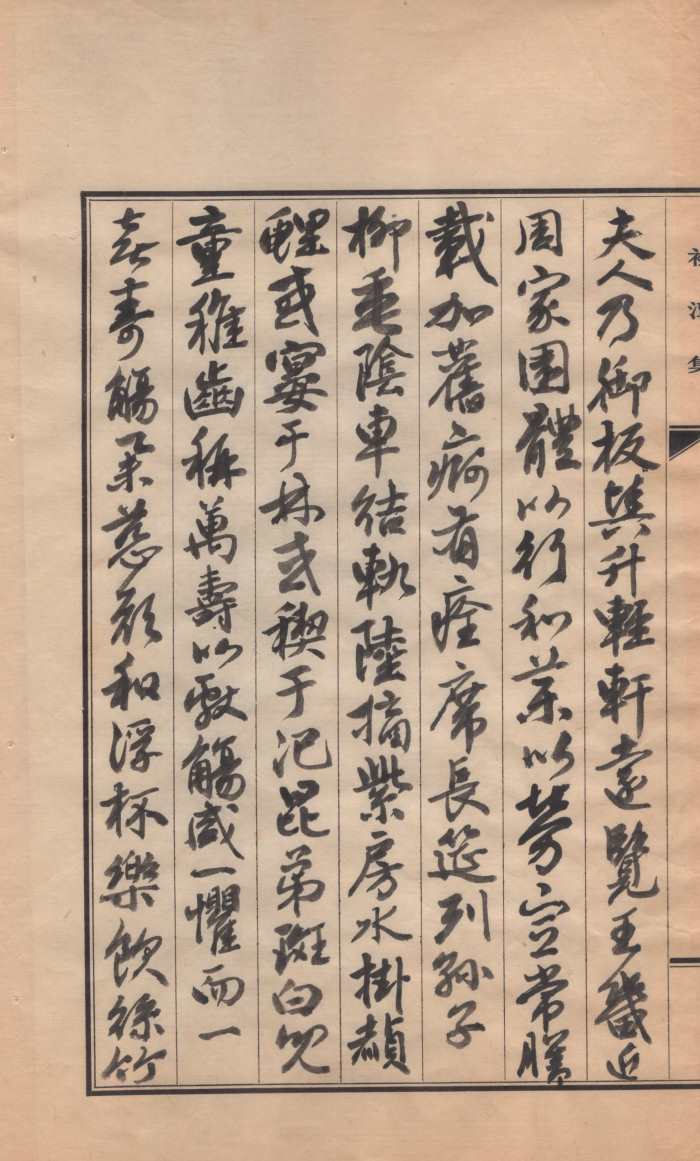 夫人乃御板輿升輕軒遠覽王畿近
周家園體以行和藥以勞宣常膳
載加舊痾有痊席長筵列孫子
柳垂陰車結軌陸摘紫房水掛赬
鯉或宴于林或禊于汜昆弟斑白兒
童稚齒稱萬壽以獻觴咸一懼而一
喜壽觴舉慈顏和浮杯樂飲絲竹